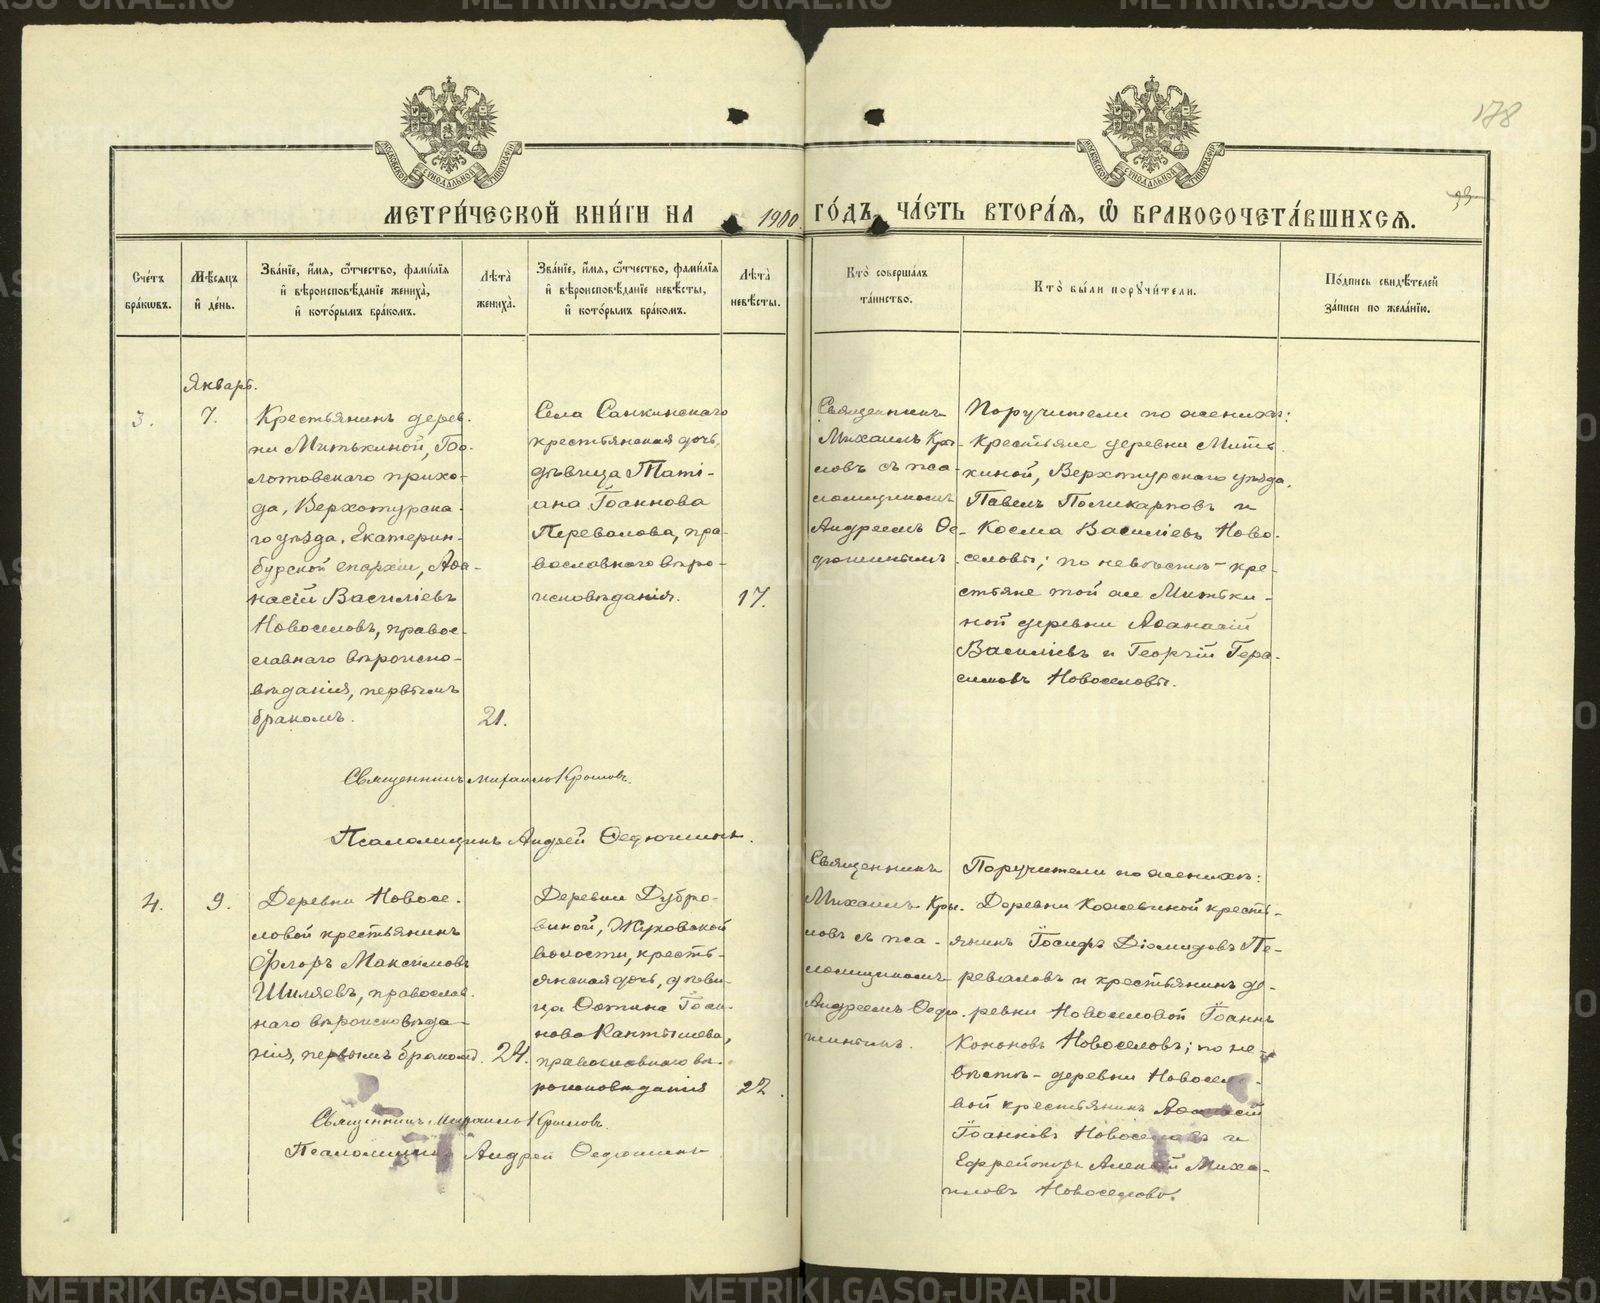 178
33
МЕТРИ́ЧЕСКОЙ КНИ́ГИ НА 1900 ГО́ДЪ, ЧА́СТЬ ВТОРА́Я, Ѽ БРАКОСОЧЕТА́ВШИХСЯ.
Сче́тъ бра́кѡвъ.
Мѣ́сяцъ и҆ де́нь.
Зва́нїе, и҆́мя, ѻ҆́тчество, фами́лїя и҆ вѣроисповѣ́данїе жениха̀, и҆ кото́рымъ бра́комъ.
Лѣта̀ жениха̀.
Зва́нїе, и҆́мя, ѻ҆́тчество, фами́лїя и҆ вѣроисповѣ́данїе невѣ́сты, и҆ кото́рымъ бра́комъ.
Лѣта̀ невѣ́сты.
Кто̀ соверша́лъ та́инство.
Кто̀ бы́ли порꙋчи́тели.
По́дпись свидѣ́телей за́писи по жела́нїю.
Январь.
3.
7.
Крестьянинъ дерев-
ни Митькиной, Бо-
лотовскаго прихо-
да, Верхотурска-
го уѣзда, Екатерин-
бургской епархіи, Аѳа-
насій Василіевъ
Новоселовъ, правос-
лавнаго вѣроиспо-
вѣданія, первымъ
бракомъ.
21.
Села Санкинскаго
крестьянская дочь,
дѣвица Таті-
ана Іоаннова
Перевалова, пра-
вославнаго вѣро-
исповѣданія.
17.
Священникъ
Михаилъ Кры-
ловъ съ пса-
ломщикомъ
Андреемъ Ѳе-
дюшинымъ.
Поручители по женихѣ:
Крестьяне деревни Мить-
киной, Верхотурскаго уѣзда,
Павелъ Поликарповъ и
Косма Василіевъ Ново-
селовы; по невѣстѣ - кре-
стьяне той же Митьки-
ной деревни Аѳанасій
Василіевъ и Георгій Гера-
симовъ Новоселовы.
Священникъ Михаилъ Крыловъ.
Псаломщикъ Андрей Ѳедюшинъ.
4.
9.
Деревни Новосе-
ловой крестьянинъ
Флоръ Максимовъ
Шиляевъ, православ-
наго вѣроисповѣда-
нія, первымъ бракомъ.
24.
Деревни Дубро-
виной, Жуковской
волости, кресть-
янская дочь, дѣви-
ца Іоан-
нова
православнаго вѣ-
роисповѣданія
22.
Священникъ
Михаилъ Кры-
ловъ съ пса-
ломщикомъ
Андреемъ Ѳедю-
шинымъ.
Поручители по женихѣ:
Деревни Кожевиной кресть-
янинъ Іосифъ Діомидовъ Пе-
реваловъ и крестьянинъ де-
ревни Новоселовой Іоаннъ
Кононовъ Новоселовъ; по не-
вѣстѣ - деревни Новосело-
вой крестьянинъ Аѳанасій
Іоанновъ Новоселовъ и
Ефрейторъ Алексій Миха-
иловъ Новоселовъ.
Священникъ Михаилъ Крыловъ.
Псаломщикъ Андрей Ѳедюшинъ
METRIKI.GASO-URAL.RU